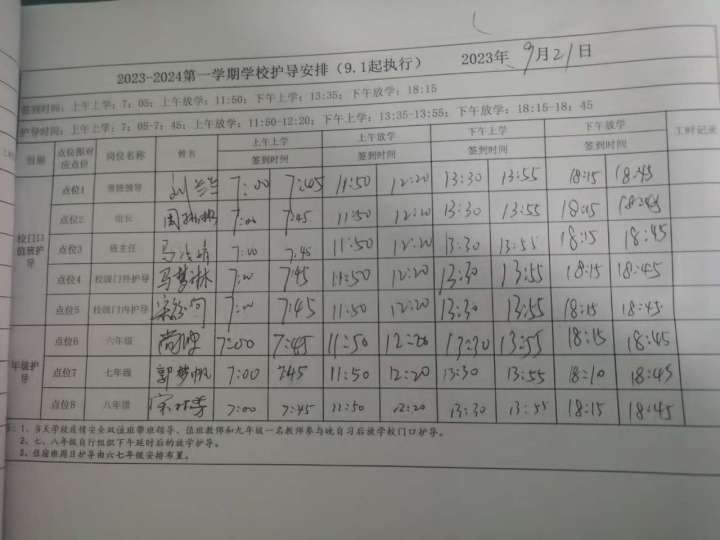 2023-2024第一学期学校护导安排（9.1起执行） 2023年 9月21日
签到时间：上午上学：7：05；上午放学：11:50；下午上学：13:35；下午放学：18:15
护导时间：上午上学：7：05-7：45；上午放学：11:50-12:20；下午上学：13:35-13:55；下午放学：18:15-18：45
组别 点位跟对应点位 岗位名称 姓名 上午上学 上午放学 下午上学 下午放学 工时记录
签到时间 签到时间 签到时间 签到时间
校门口值班护导
点位1 带班领导 刘兰兰 7:00 7:45 11:50 12:20 13:30 13:55 18:15 18:45
点位2 组长 周 7:00 7:45 11:50 12:20 13:30 13:55 18:15 18:45
点位3 班主任 马 7:00 7:45 11:50 12:20 13:30 13:55 18:15 18:45
点位4 校园门外护导 马梦琳 7:00 7:45 11:50 12:20 13:30 13:55 18:15 18:45
点位5 校园门内护导 宋 7:00 7:45 11:50 12:20 13:30 13:55 18:15 18:45
年级护导
点位6 六年级 7:00 7:45 11:50 12:20 13:30 13:55 18:15 18:45
点位7 七年级 郭梦帆 7:00 7:45 11:50 12:20 13:30 13:55 18:10 18:45
点位8 八年级 宋 7:00 7:45 11:50 12:20 13:30 13:55 18:15 18:45
注：1、当天学校疫情安全双值班带班领导、值班教师和九年级一名教师参与晚自习后放学校门口护导。
2、七、八年级自行组织下午延时后的放学护导。
3、住宿班周日护导由六七年级安排布置。